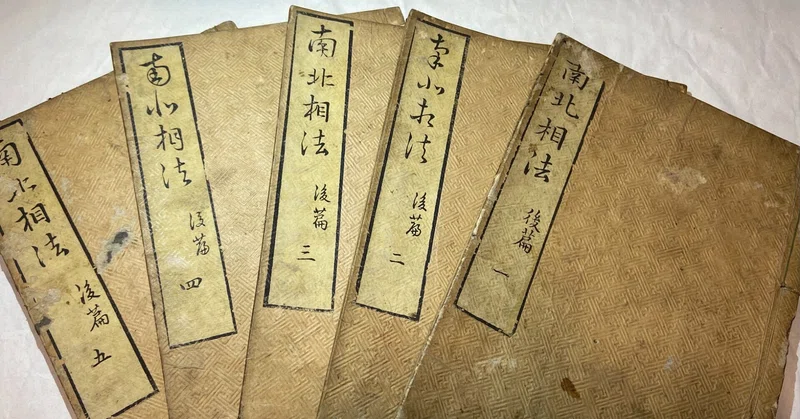 南北相法 後篇 一
南北相法 後篇 二
南北相法 後篇 三
南北相法 後篇 四
南北相法 後篇 五